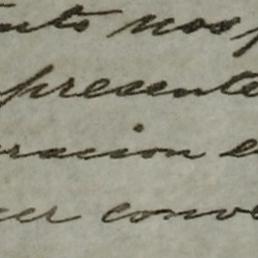 nto nos p
presente
racion e
cer conve